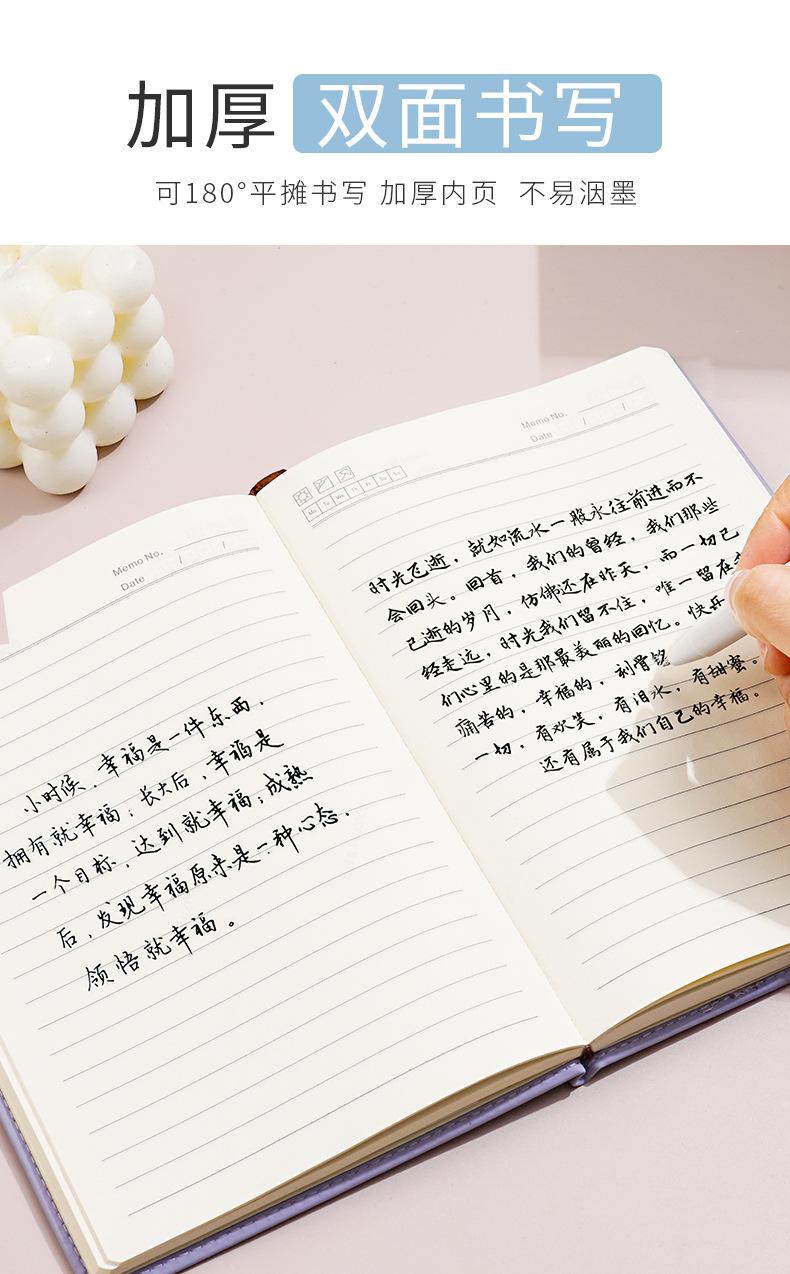 加厚 双面书写
可180°平摊书写 加厚内页 不易洇墨
Memo No.
Date / /
小时候，幸福是一件东西，
拥有就幸福；长大后，幸福是
一个目标，达到就幸福；成熟
后，发现幸福原来是一种心态，
领悟就幸福。
Mo Tu We Th Fr Sa Su
Memo No.
Date / /
时光飞逝，就如流水一般永往前进而不
会回头。回首，我们的曾经，我们那些
已逝的岁月，仿佛还在昨天，而一切已
经走远，时光我们留不住，唯一留在
们心里的是那最美丽的回忆。快
痛苦的，幸福的，刻骨铭
一切，有欢笑，有泪水，有甜蜜。
还有属于我们自己的幸福。